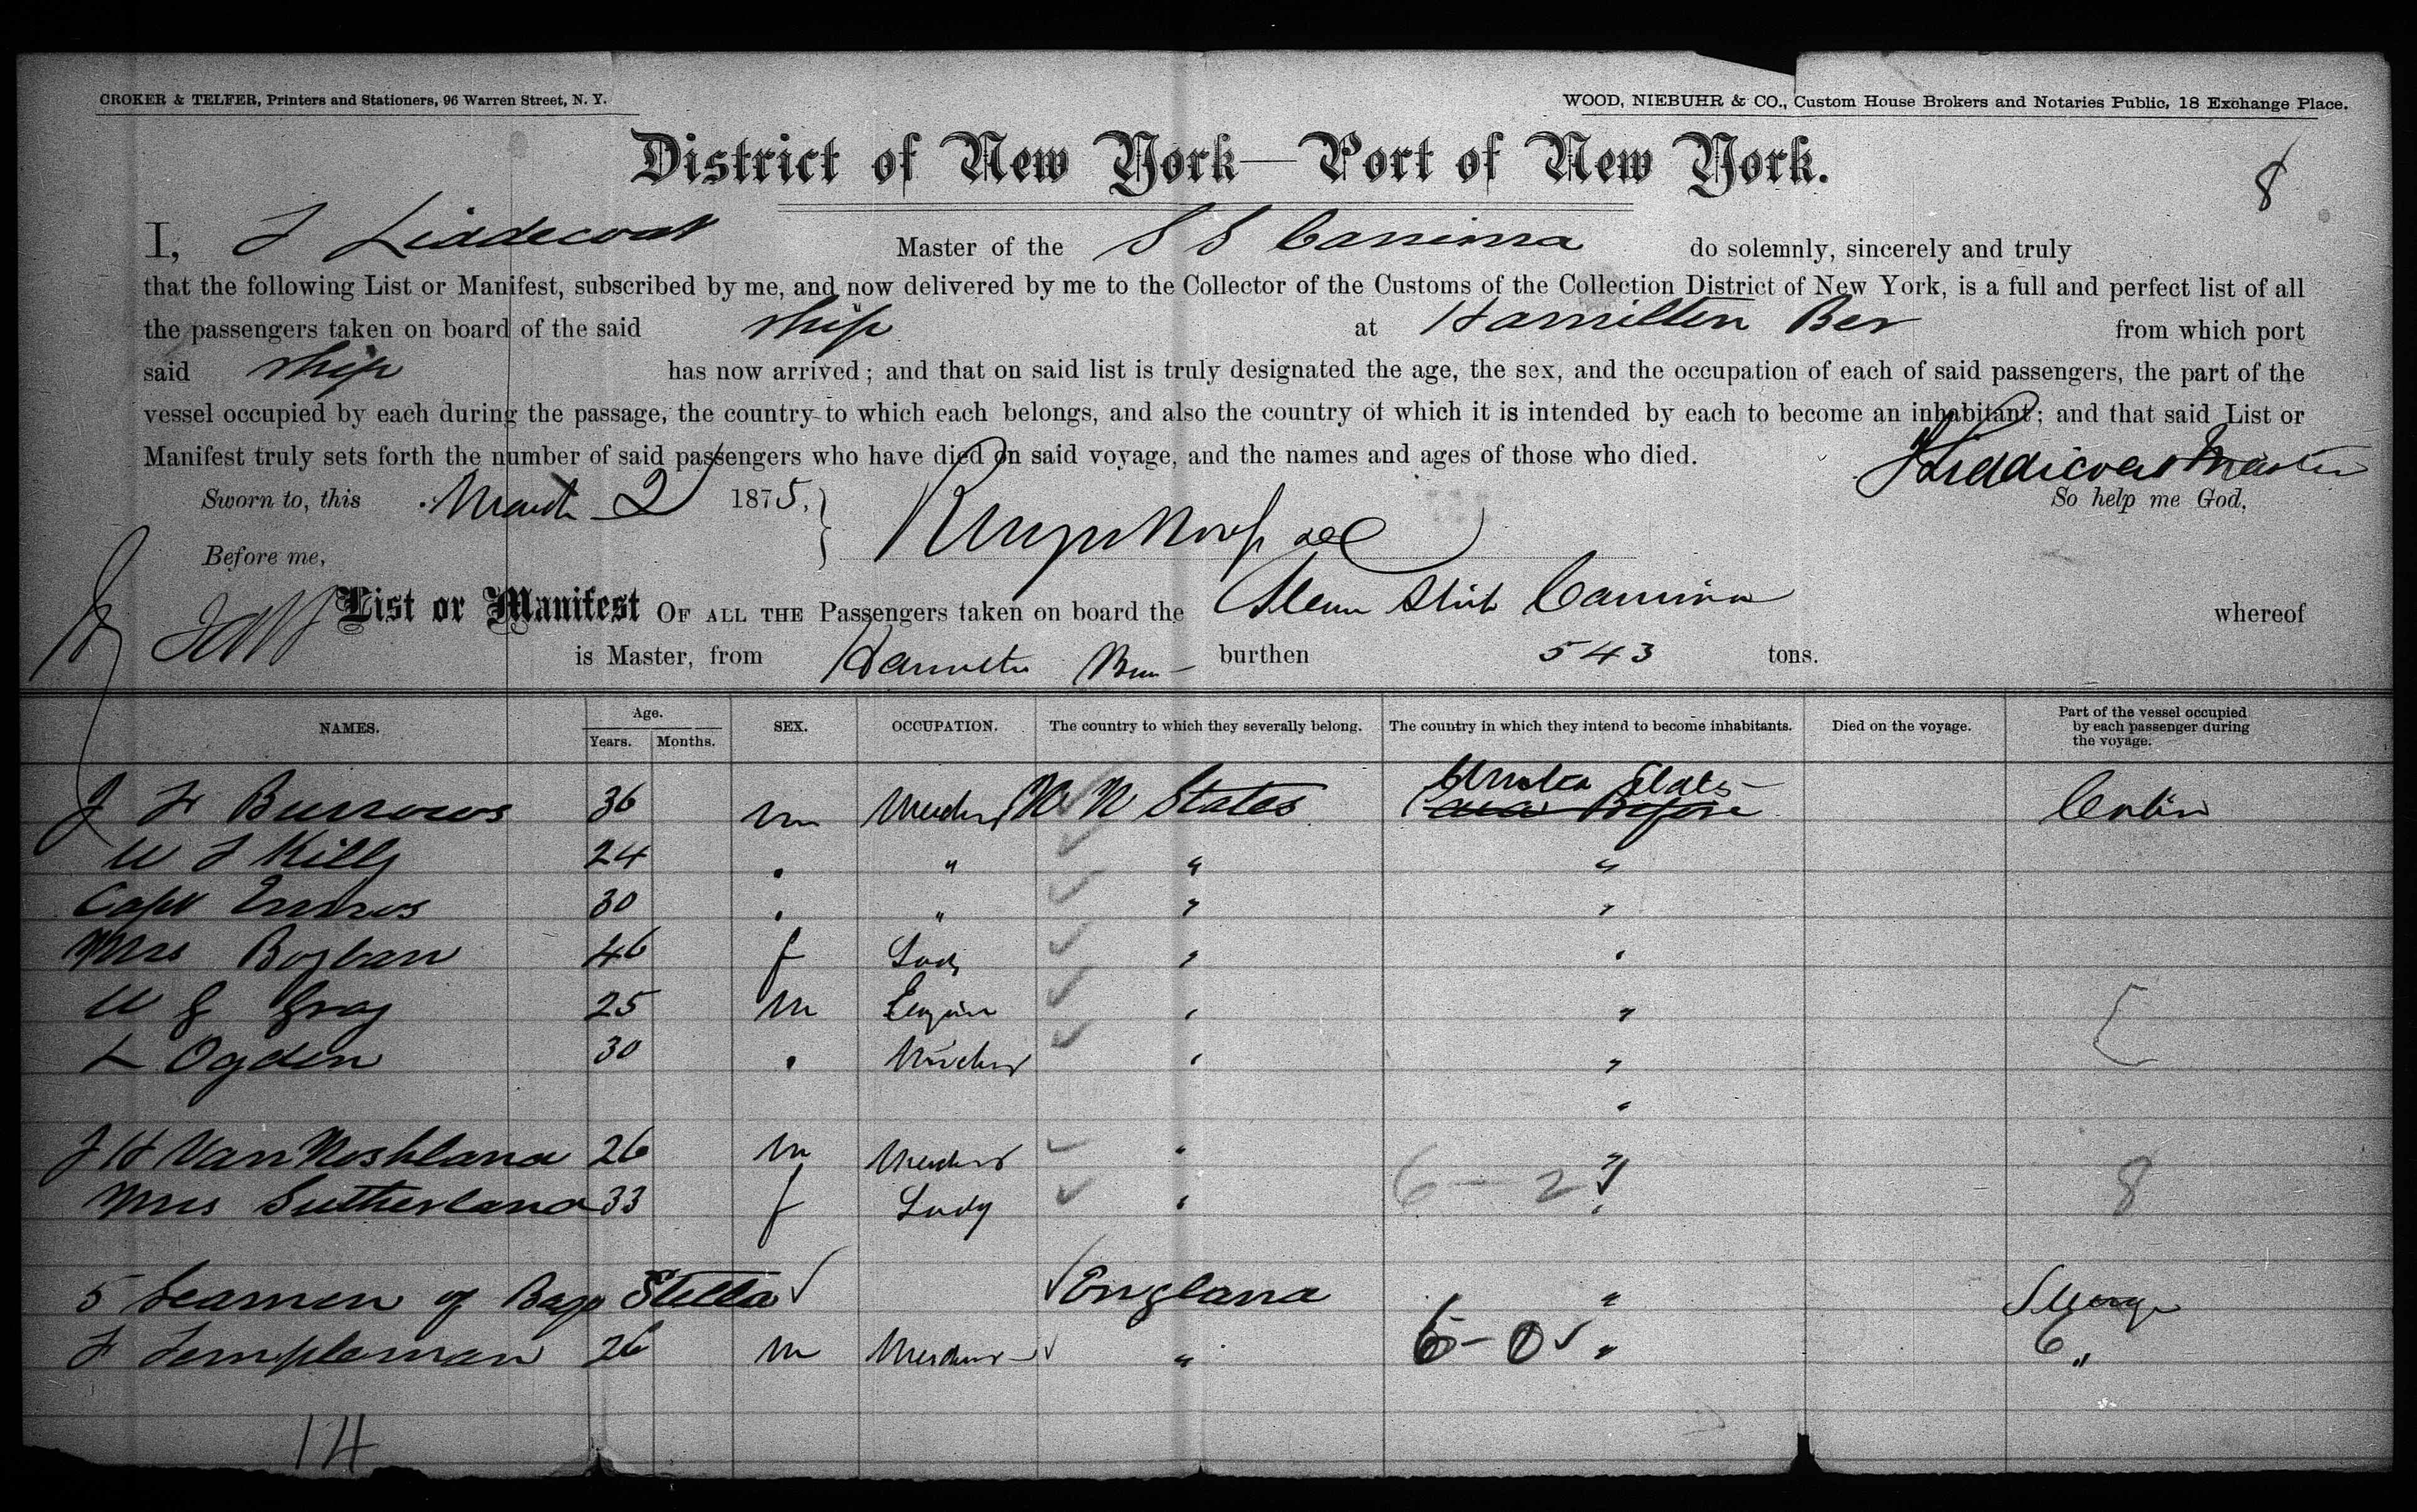 CROKER & TELFER, Printers and Stationers, 96 Warren Street, N. Y.
WOOD, NIEBUHR & CO., Custom House Brokers and Notaries Public, 18 Exchange Place.
District of New York—Port of New York.
8
I, J Liddicoat Master of the S S Canima do solemnly, sincerely and truly
that the following List or Manifest, subscribed by me, and now delivered by me to the Collector of the Customs of the Collection District of New York, is a full and perfect list of all
the passengers taken on board of the said ship at Hamilton Ber from which port
said ship has now arrived; and that on said list is truly designated the age, the sex, and the occupation of each of said passengers, the part of the
vessel occupied by each during the passage, the country to which each belongs, and also the country of which it is intended by each to become an inhabitant; and that said List or
Manifest truly sets forth the number of said passengers who have died on said voyage, and the names and ages of those who died.
Liddicoat Master
Sworn to, this March 2 1875. So help me God,
Before me,
List or Manifest OF ALL THE Passengers taken on board the Steam Ship Canima whereof
is Master, from Hamilton Bm burthen 543 tons.
NAMES. Age. Years. Months. SEX. OCCUPATION. The country to which they severally belong. The country in which they intend to become inhabitants. Died on the voyage. Part of the vessel occupied by each passenger during the voyage.
United States
J H Burrows 36 m Merchant States Cabin
W J Kelly 24 . " " "
Capt 30 . " " "
Mrs 46 f Lady " "
W G Gray 25 m " "
L Ogden 30 . Merchant " "
"
J H Van Noshland 26 m Merchant " "
Mrs Sutherland 33 f Lady " 6 - 2 " 8
5 Seamen of Stella England " Steerage
F Templeman 26 m Merchant " 6 - 0 " 6 "
14